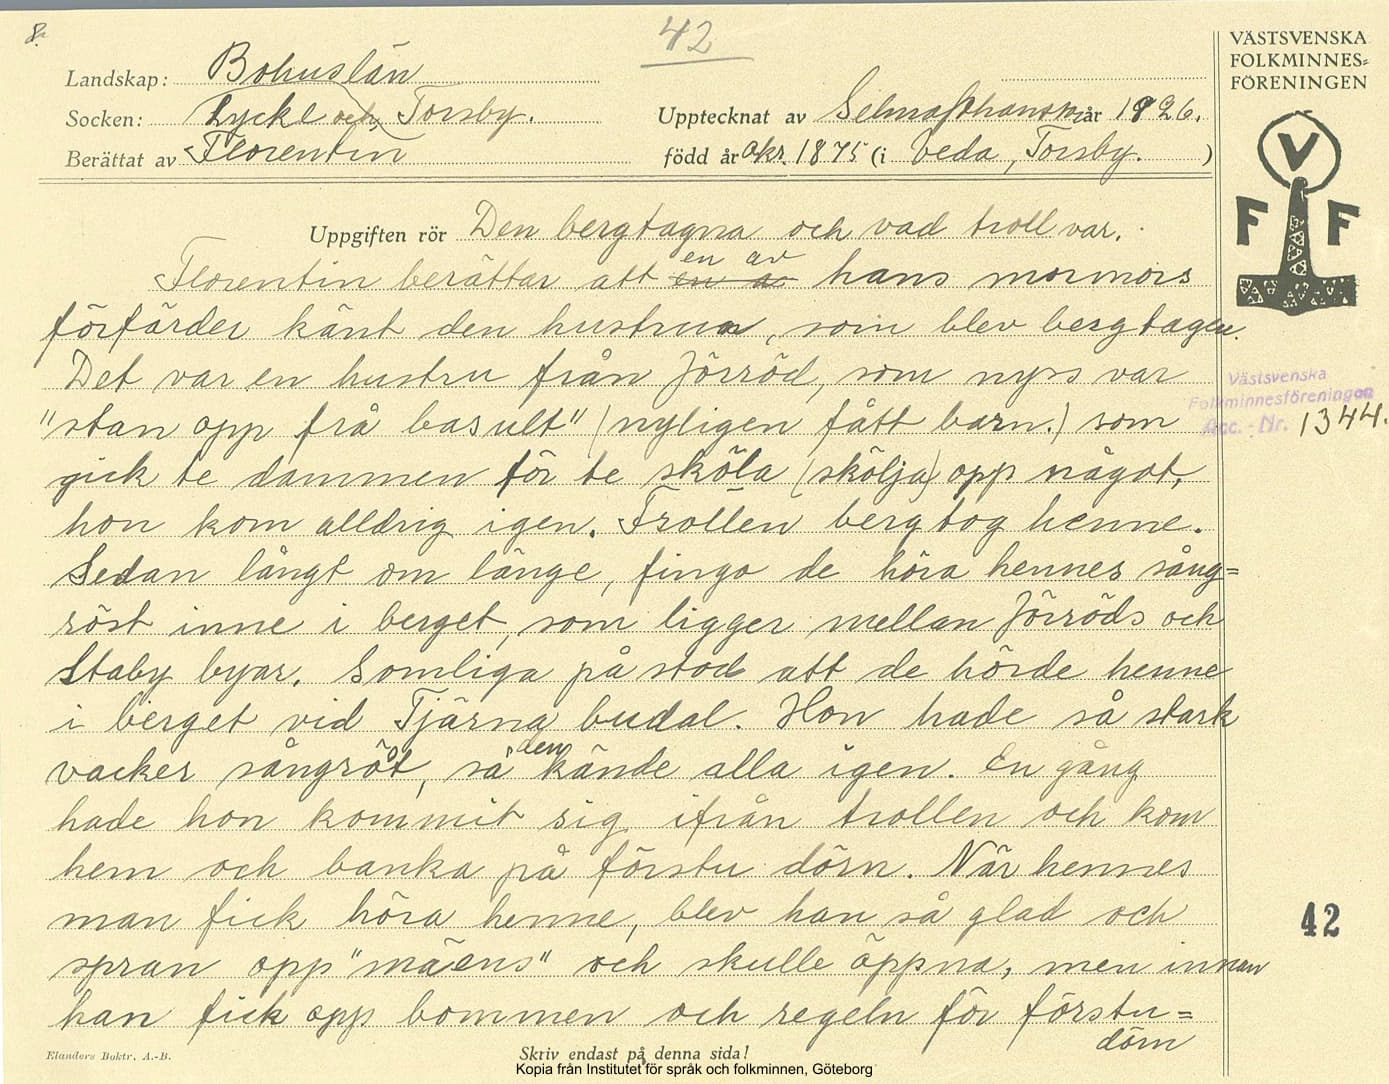 8.
42
Landskap: Bohuslän
Socken: Lycke och Torsby.
Upptecknat av Selma Johansson år 1926.
Berättat av Florentin
född år 1875 (i Veda, Torsby. )
VÄSTSVENSKA
FOLKMINNES=
FÖRENINGEN
V
F F
Uppgiften rör Den bergtagna och vad troll var.
Florentin berättar att en av hans mormors
förfärder känt den hustrun, som blev bergtagen.
Det var en hustru från Jörröd, som nyss var
"stan opp frå basult" (nyligen fått barn.) som
gick te dammen för te sköla (skölja) opp något,
hon kom alldrig igen. Trollen bergtog henne.
Sedan långt om länge, fingo de höra hennes sång=
röst inne i berget, som ligger mellan Jörröds och
Staby byar. Somliga på stod att de hörde henne
i berget vid Tjärna budal. Hon hade så stark
vacker sångröst, så den kände alla igen. En gång
hade hon kommit sig ifrån trollen och kom
hem och banka på förstu dörn. När hennes
man fick höra henne, blev han så glad och
spran opp "mäens" och skulle öppna, men innan
han fick opp bommen och regeln för förstu=
dörn
Västsvenska
Folkminnesföreningen
Acc.-Nr. 1344.
42
Elanders Boktr. A.-B.
Skriv endast på denna sida!
Kopia från Institutet för språk och folkminnen, Göteborg